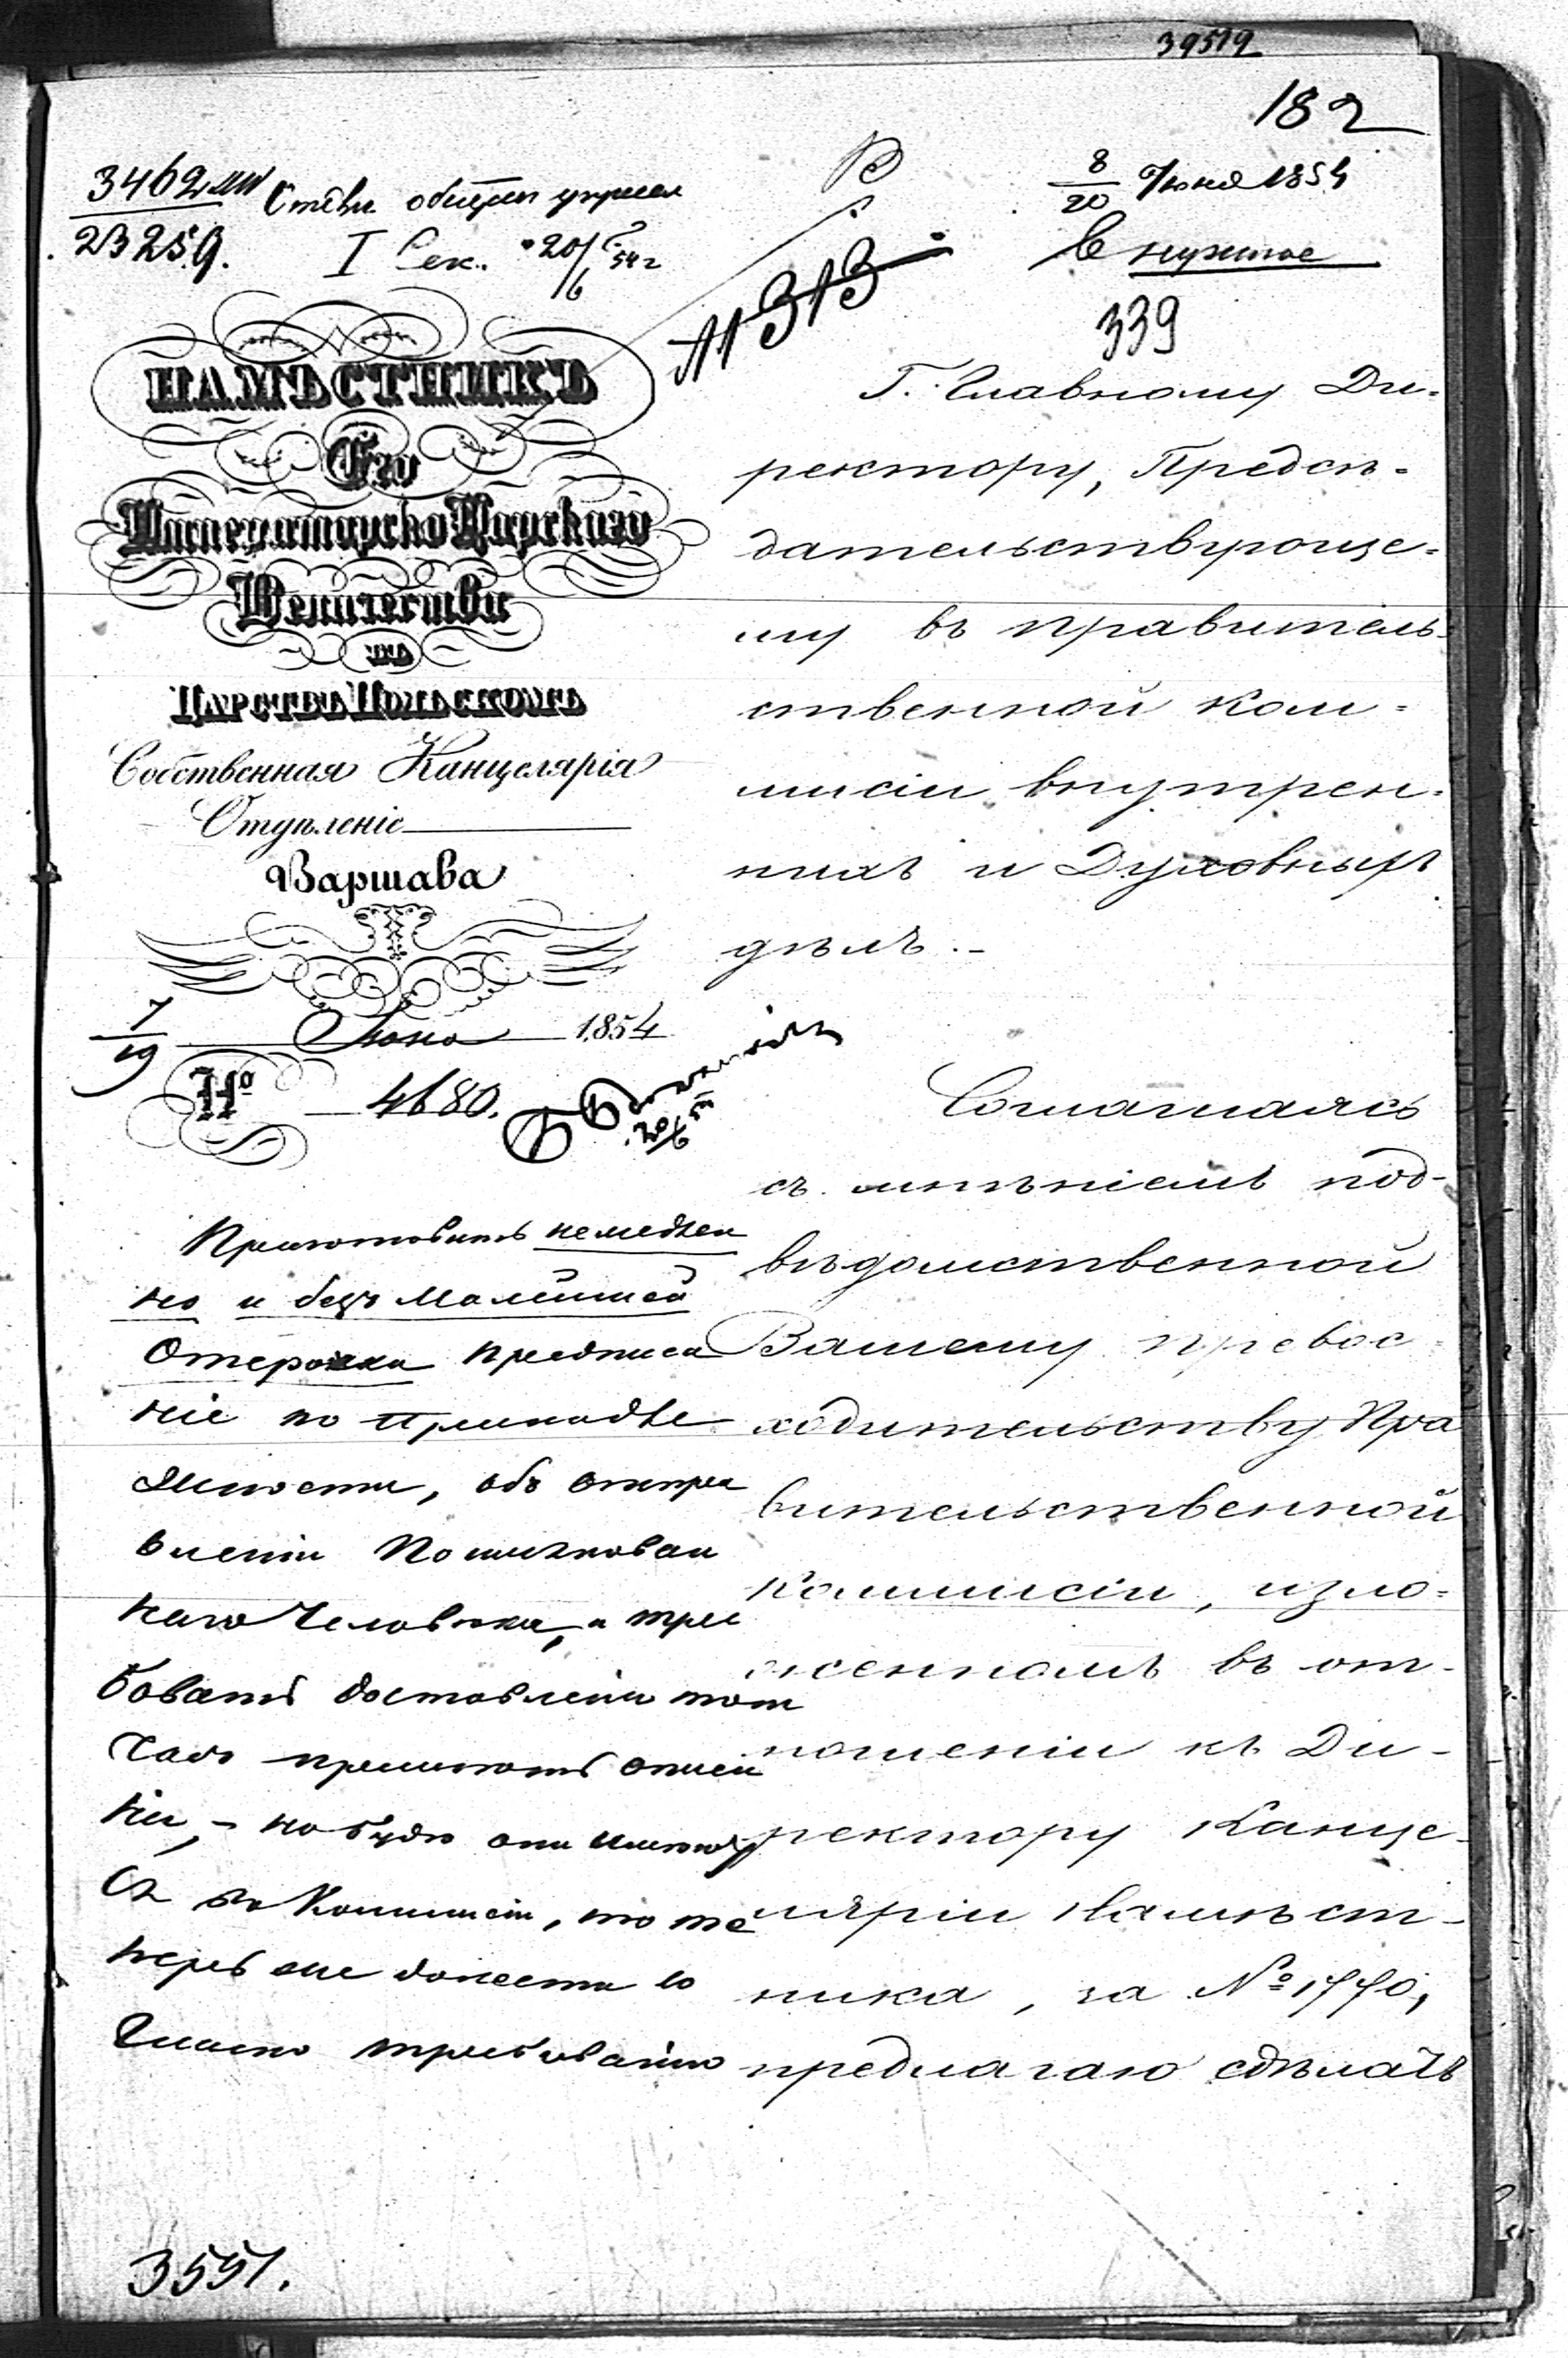 39519
182
3462
23259.
I Сек. 20/6 54 г
8/20 Июня 1854
Внутрное
339
11313
НАМѢСТНИКЪ
Его
Императорско Царскаго
Величества
въ
Царствѣ Польскомъ
Собственная Канцелярія
Отдѣленіе
Варшава
7/19 Июня 1854
№ 4680.
20/6
Г. Главному Ди-
ректору, Предсѣ-
дательствующе-
му въ Правитель-
ственной Ком-
мисіи внутрен-
нихъ и Духовныхъ
дѣлъ.-
Соглашаясь
съ мнѣніемъ под-
вѣдомственной
Вашему Превос-
ходительству Пра
вительственной
Коммисіи, изло-
женномъ въ от-
ношеніи къ Ди-
ректору Канце-
ляріи Намѣст-
ника, за № 1770,
предлагаю сдѣлать
Приготовить немедлен
но и безъ малѣйшей
Отсрочки предписа
ніе по принадле
жности, объ отпра
вленіи Поименован
наго Человѣка, и тре
бовать доставленія тот
часъ
въ Коммисіи, то те
перь же донести со
гласно требованію
3551.